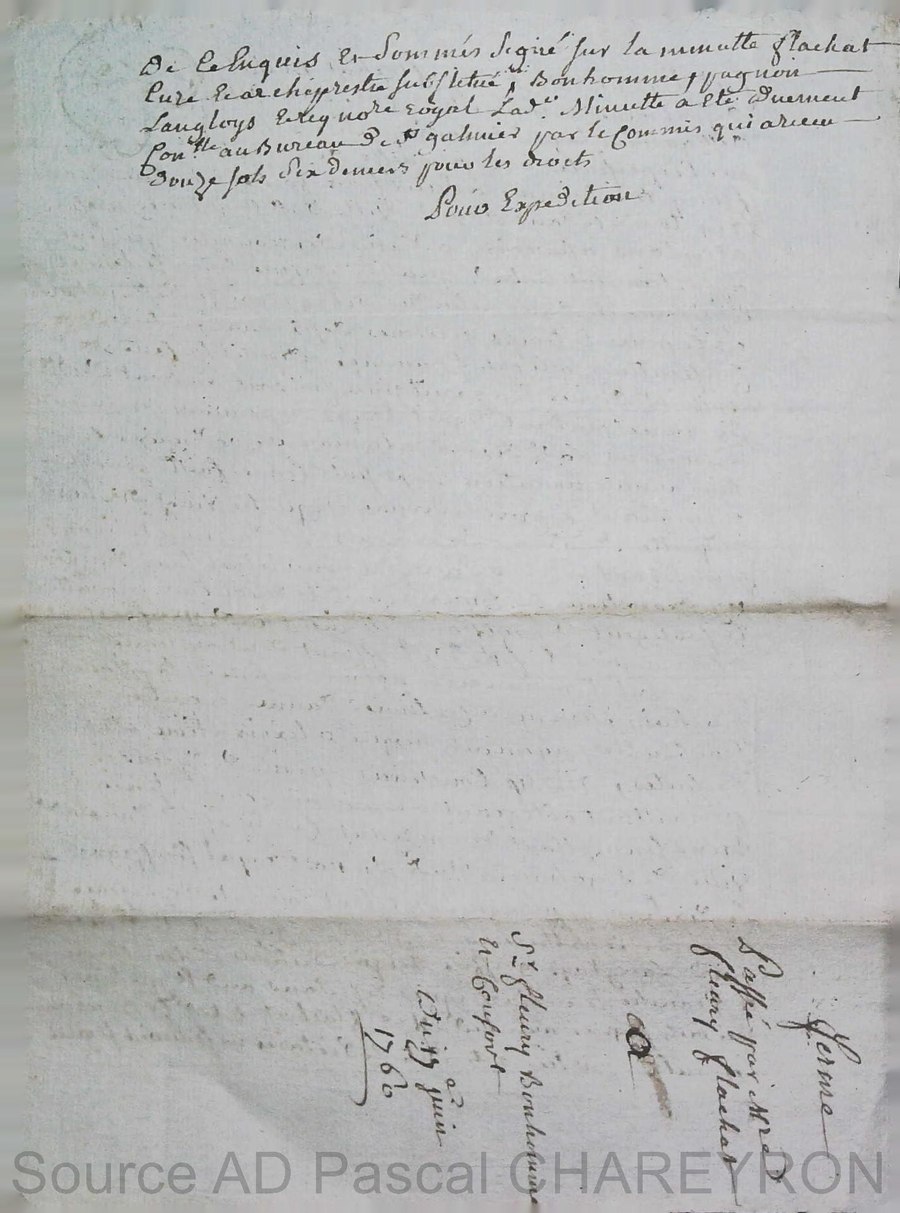 De ce Enquis et Sommés Signé sur la minutte flachat
Curé et archiprestre substitué Bonhomme, pagnon
Langloys et no.re Royal Lad.e Minutte a Eté duement
Con.lle au Bureau de S.t galmier par le Commis qui a receu
Douze sols Six deniers pour les droits
Pour Expedition
ferme
Passé par M.re
fleury flachat
a
S.r fleury Bonhomme
et Consort
Du juin
1760
Source AD Pascal CHAREYRON